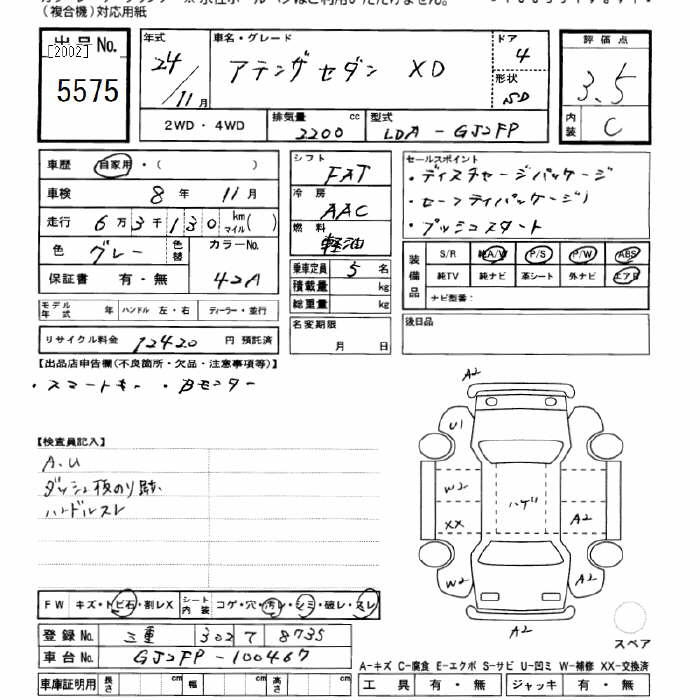 (複合機)対応用紙
出品No.
[2002]
5575
年式 24/11月
車名・グレード アテンザ セダン XD
ドア 4
形状 SD
評価点 3.5
内装 C
2WD・4WD
排気量 2200 cc
型式 LDA-GJ2FP
車歴 自家用・( )
車検 8年 11月
走行 6万3千130 km マイル( )
色 グレー 色替 カラーNo. 42A
保証書 有・無
モデル年式 年 ハンドル 左・右 ディーラー・並行
リサイクル料金 12420 円 預託済
シフト FAT
冷房 AAC
燃料 軽油
乗車定員 5 名
積載量 kg
総重量 kg
名変期限 月 日
セールスポイント
・ディスチャージパッケージ
・セーフティパッケージ
・プッシュスタート
装備品 S/R 純A/W P/S P/W ABS
純TV 純ナビ 革シート 外ナビ エアB
ナビ型番:
後日品
【出品店申告欄(不良箇所・欠品・注意事項等)】
・スマートキー ・Bモニター
【検査員記入】
A.U
ダッシュ板のり跡
ハンドルスレ
A2
U1
W2
XX
W2
ハゲ
A2
A2
A2
スペア
FW キズ・トビ石・割レX シート内装 コゲ・穴・汚レ・シミ・破レ・スレ
登録No. 三重 302 て 8735
車台No. GJ2FP-100467
車庫証明用 長さ cm 幅 cm 高さ cm
A-キズ C-腐食 E-エクボ S-サビ U-凹ミ W-補修 XX-交換済
工具 有・無 ジャッキ 有・無